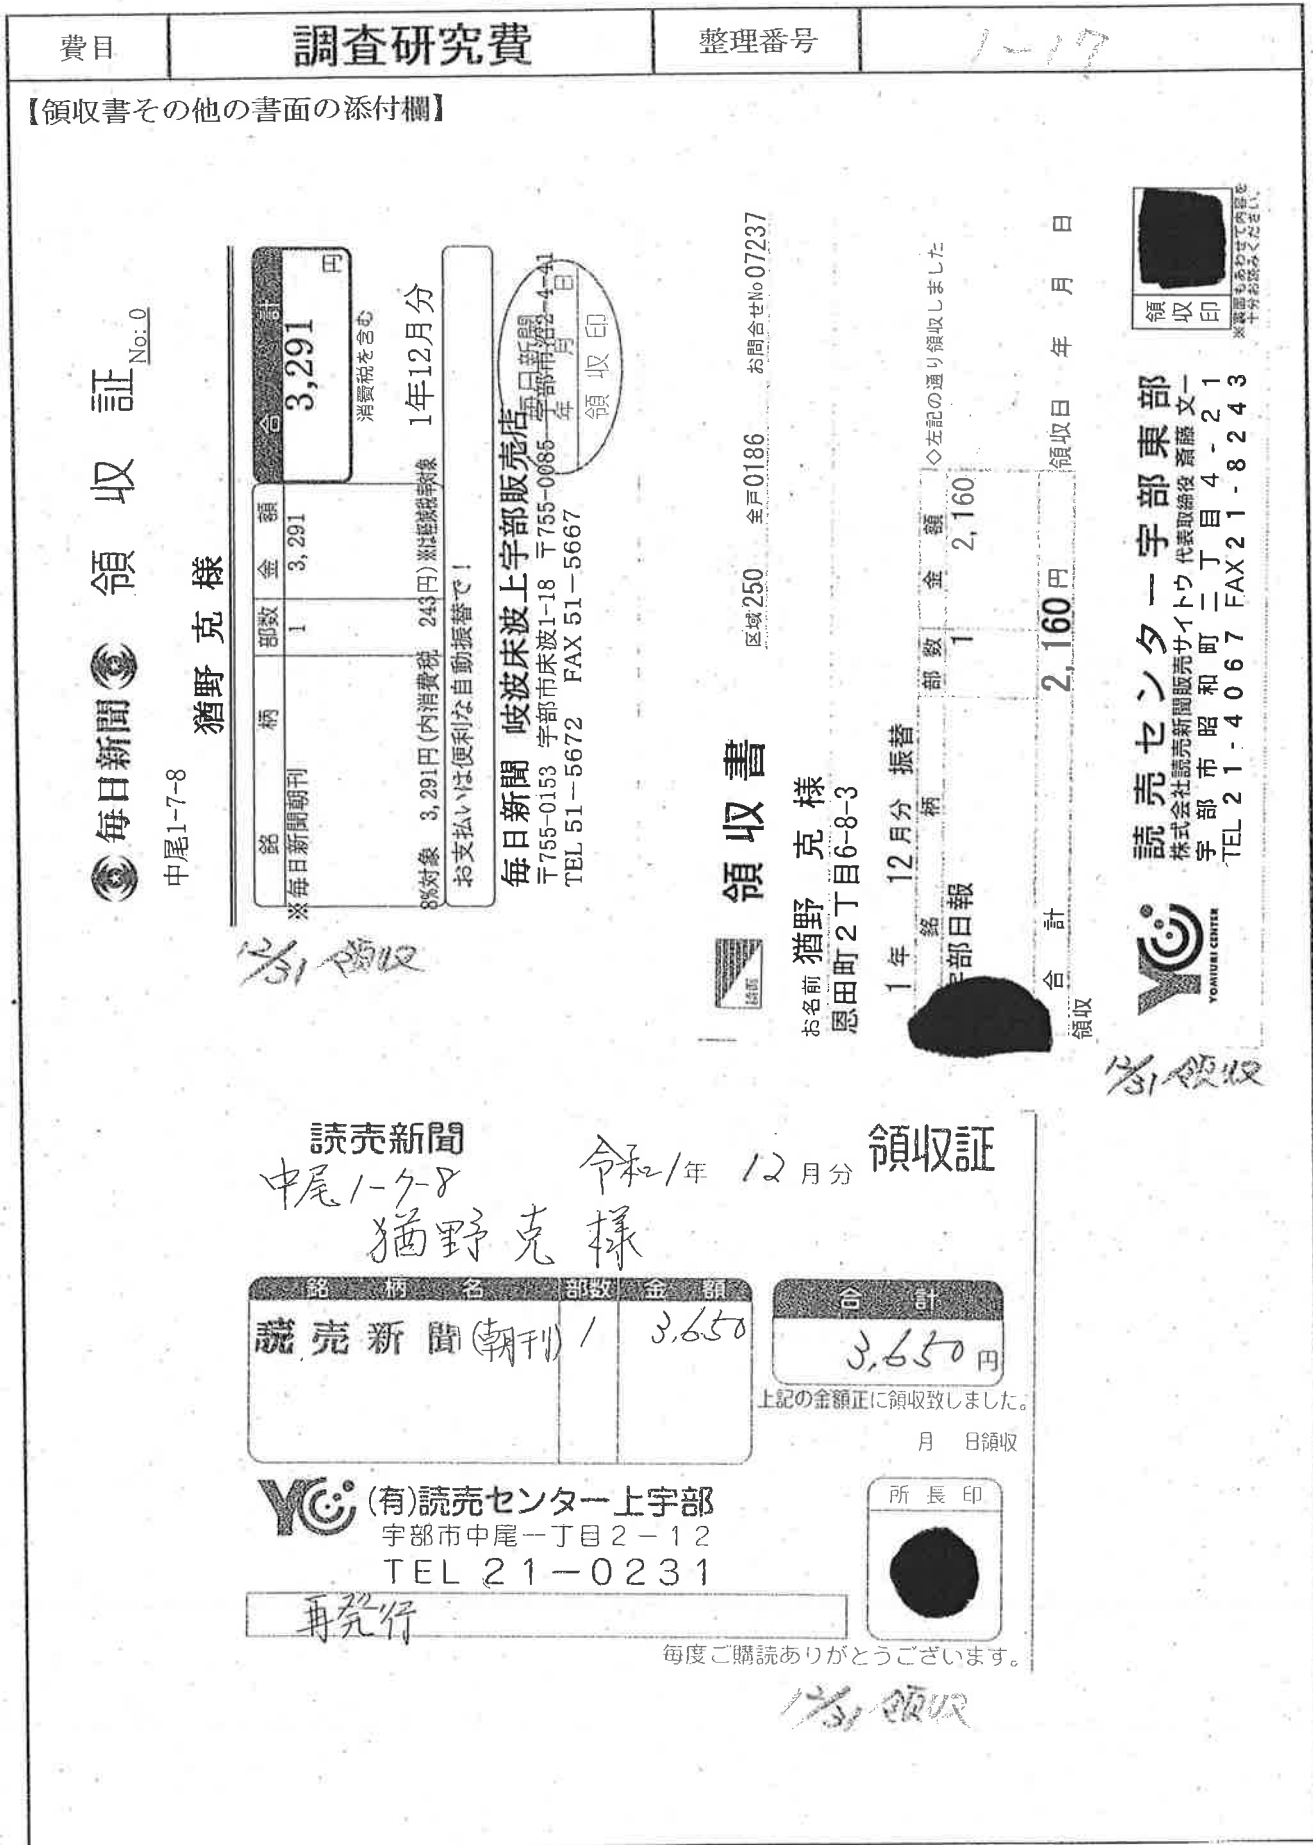 費目 調査研究費 整理番号 1-17
【領収書その他の書面の添付欄】
毎日新聞 領収証 No: 0
中尾1-7-8
猶野 克 様
銘柄 部数 金額 合計
※毎日新聞朝刊 1 3,291 3,291 円
消費税を含む
8%対象 3,291円(内消費税 243円)※は軽減税率対象 1年12月分
お支払いは便利な自動振替で!
毎日新聞 岐波床波上宇部販売店
〒755-0153 宇部市床波1-18 〒755-0086 宇部市中沼2-4-41
TEL 51-5672 FAX 51-5667
年 月 日
領収印
12/31 領収
読売 領収書 区域250 全戸0186 お問合せNo07237
お名前 猶野 克 様
恩田町2丁目6-8-3
1年 12月分 振替
銘柄 部数 金額 ◇左記の通り領収しました
宇部日報 1 2,160
合計 2,160円 領収日 年 月 日
領収
YC YOMIURI CENTER
読売センター宇部東部
株式会社読売新聞販売サイトウ 代表取締役 斎藤 文一
宇部市昭和町二丁目4-21
TEL21-4067 FAX21-8243
領収印
※裏面もあわせて内容を
十分お読みください。
12/31 領収
読売新聞 令和1年 12月分 領収証
中尾1-7-8
猶野克 様
銘柄名 部数 金額 合計
読売新聞(朝刊) 1 3,650 3,650円
上記の金額正に領収致しました。
月 日領収
YC (有)読売センター上宇部
宇部市中尾一丁目2-12
TEL 21-0231
所長印
再発行
毎度ご購読ありがとうございます。
12/31 領収